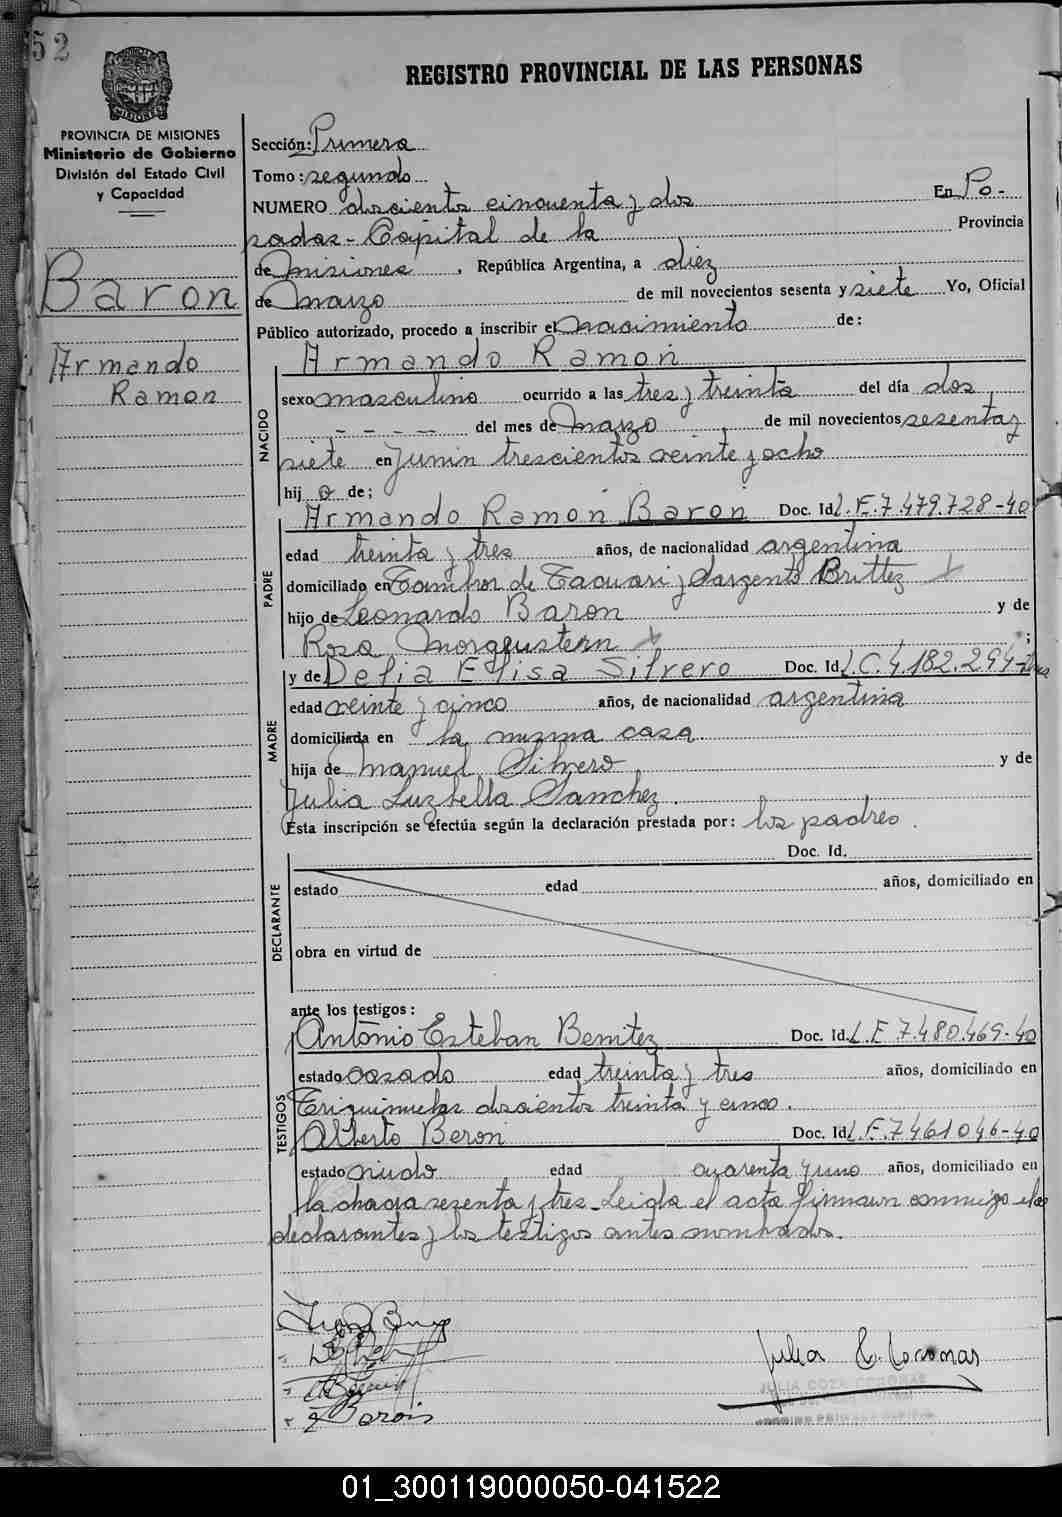 52
PROVINCIA DE MISIONES
Ministerio de Gobierno
División del Estado Civil
y Capacidad
Baron
Armando
Ramon
REGISTRO PROVINCIAL DE LAS PERSONAS
Sección: Primera
Tomo: segundo
NUMERO doscientos cincuenta y dos En Po-
sadas - Capital de la Provincia
de Misiones, República Argentina, a diez
de Marzo de mil novecientos sesenta y siete Yo, Oficial
Público autorizado, procedo a inscribir el nacimiento de:
Armando Ramon
NACIDO
sexo masculino ocurrido a las tres y treinta del día dos
---- del mes de Marzo de mil novecientos sesenta y
siete en Junin trescientos veinte y ocho
hij o de;
PADRE
Armando Ramon Baron Doc. Id. L.E. 7.479.728-40
edad treinta y tres años, de nacionalidad argentina
domiciliado en Tambor de Tacuari y Sargento Brittez
hijo de Leonardo Baron y de
Rosa Morgenstern ;
MADRE
y de Delia Elisa Silvero Doc. Id. L.C. 4.182.294
edad veinte y cinco años, de nacionalidad argentina
domiciliada en la misma casa.
hija de Manuel Silvero y de
Julia Luzbella Sanchez.
Esta inscripción se efectúa según la declaración prestada por: los padres.
DECLARANTE
Doc. Id.
estado edad años, domiciliado en
obra en virtud de
ante los testigos:
TESTIGOS
Antonio Esteban Benitez Doc. Id. L.E 7.480.469-40
estado casado edad treinta y tres años, domiciliado en
Triquiñuelas doscientos treinta y cinco.
Alberto Beron Doc. Id. L.E. 7461046-40
estado viudo edad cuarenta y uno años, domiciliado en
la chacra sesenta y tres - Leida el acta firman conmigo los
declarantes y los testigos antes nombrados.
Julia C. Coronas
JULIA COZA CORONAS
01_300119000050-041522